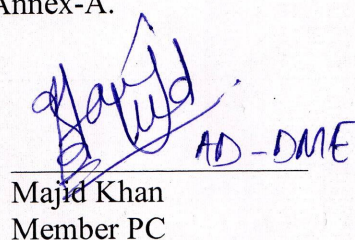 Annex-A.
AD-DME
Majid Khan
Member PC